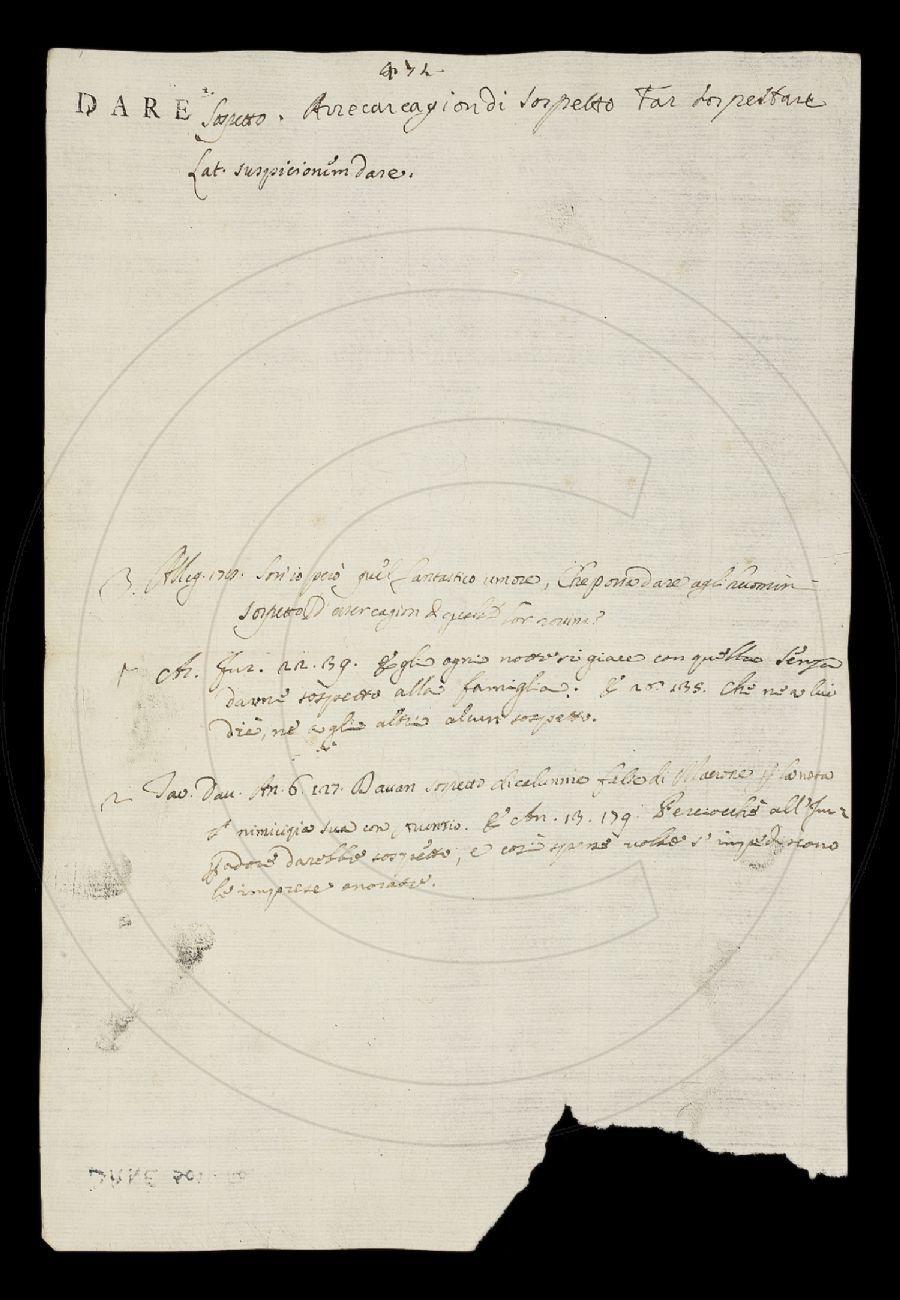 432
DARE Sospetto. Arrecar cagion di sospetto Far sospettare
Lat. suspicionem dare.
3. Alleg. 179. Son io però quel fantastico umore, Che possa dare agl'huomin
sospetto D'aver cagion di lor rovina?
1 An. Fur. 22. 39. Egli ogni notte si giace con quella Senza
darne sospetto alla famiglia. E 28. 135. Che nè a lui
diè, nè agli altri alcun sospetto.
2 Tac. Dav. An. 6. 127. Davan sospetto di calunnie false di Macrone la nota
nimicizia sua con Arruntio. E An. 13. 179. Perciocchè all'Im-
padore darebbe sospetto, e così spesse volte s'impediscono
le imprese onorate.
DARE